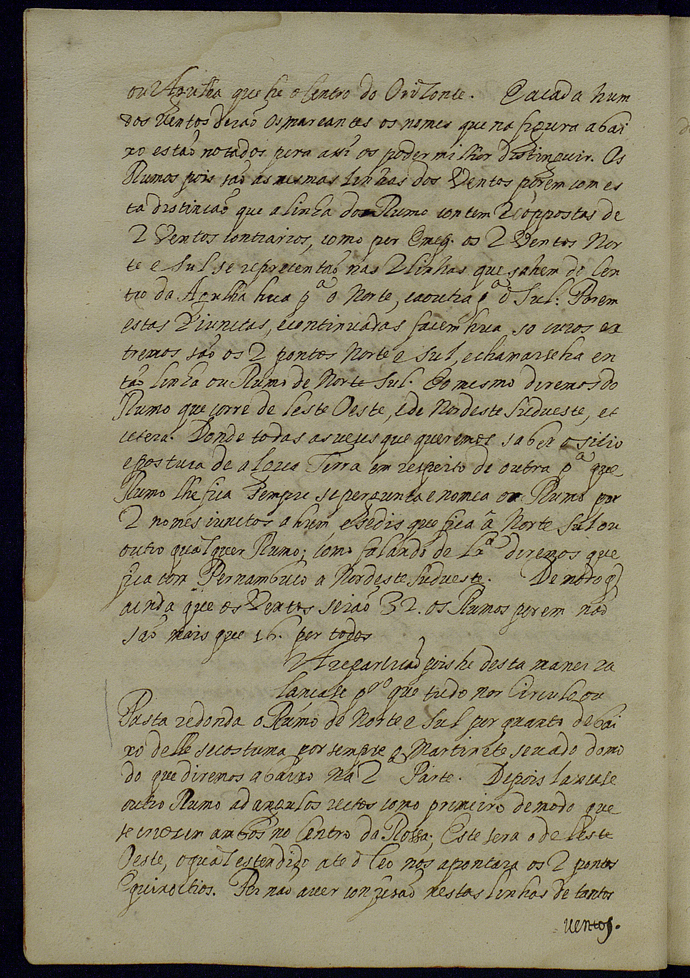 ou Agulha que he o Centro do Orizonte. E a cada hum
dos Ventos derão os mareantes os nomes que na figura abai
xo estão notados pera assi os poder milhor distinguir. Os
Rumos pois são as mesmas linhas dos Ventos porem com es
ta distincão que a linha do Rumo contem 2 oppostas de
2 Ventos contrarios, como por Emeq. os 2 Ventos Nor
te e Sul se representão nas 2 linhas que sahem do Cen
tro da Agulha hua pª o Norte, e a outra pª o Sul: Porem
estas 2 iunctas, e continuadas fazem hua, so cuios ex
tremos são os 2 pontos Norte e Sul, e chamarseha en
tão linha ou Rumo de Norte Sul. O mesmo diremos do
Rumo que corre de Leste Oeste, e de Nordeste Sudueste, et
cetera. Donde todas as vezes que queremos saber o sitio
e postura de algua Terra em respeito de outra pª que
Rumo lhe fica Sempre se pergunta e nomea o Rumo por
2 nomes iunctos a hum e se dis que fica a Norte Sul ou
outro qualquer Rumo; como falando de Lxª diremos que
fica com Pernambuco a Nordeste Sudueste. De modo q
ainda que os Ventos seião 32. os Rumos porem não
são mais que 16. per todos
A repartição pois he desta maneira
Lancase pro que tudo nor Circulo, ou
Pasta redonda o Rumo de Norte e Sul per quanto debai
xo delle se costuma por sempre o Martinete sevado do mo
do que diremos abaixo na 2ª Parte. Depois lancase
outro Rumo ad angulos rectos como primeiro de modo que
se cruzem ambos no Centro da Rosa, Este sera o de Leste
Oeste, o qual estendido ate o Ceo nos apontara os 2 pontos
Equinoctios. Per não aver confusão nestas linhas de tantos
uentos.